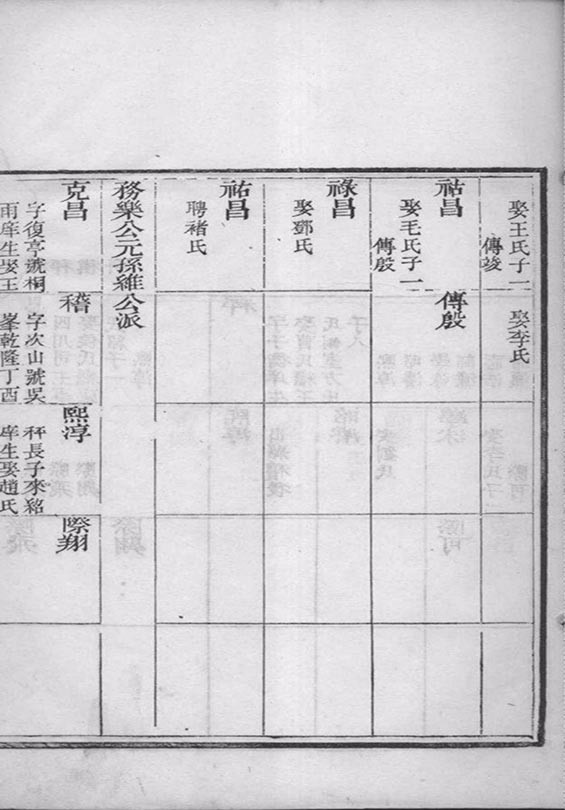 娶王氏子一
傳竣
娶李氏
祜昌
娶毛氏子一
傳殷
傳殷
祿昌
娶鄧氏
祐昌
聘褚氏
務樂公元孫維公派
克昌
字復亭號桐
雨庠生娶王
稽
字次山號吳
峯乾隆丁酉
熙淳
秤長子來紹
庠生娶趙氏
際翔